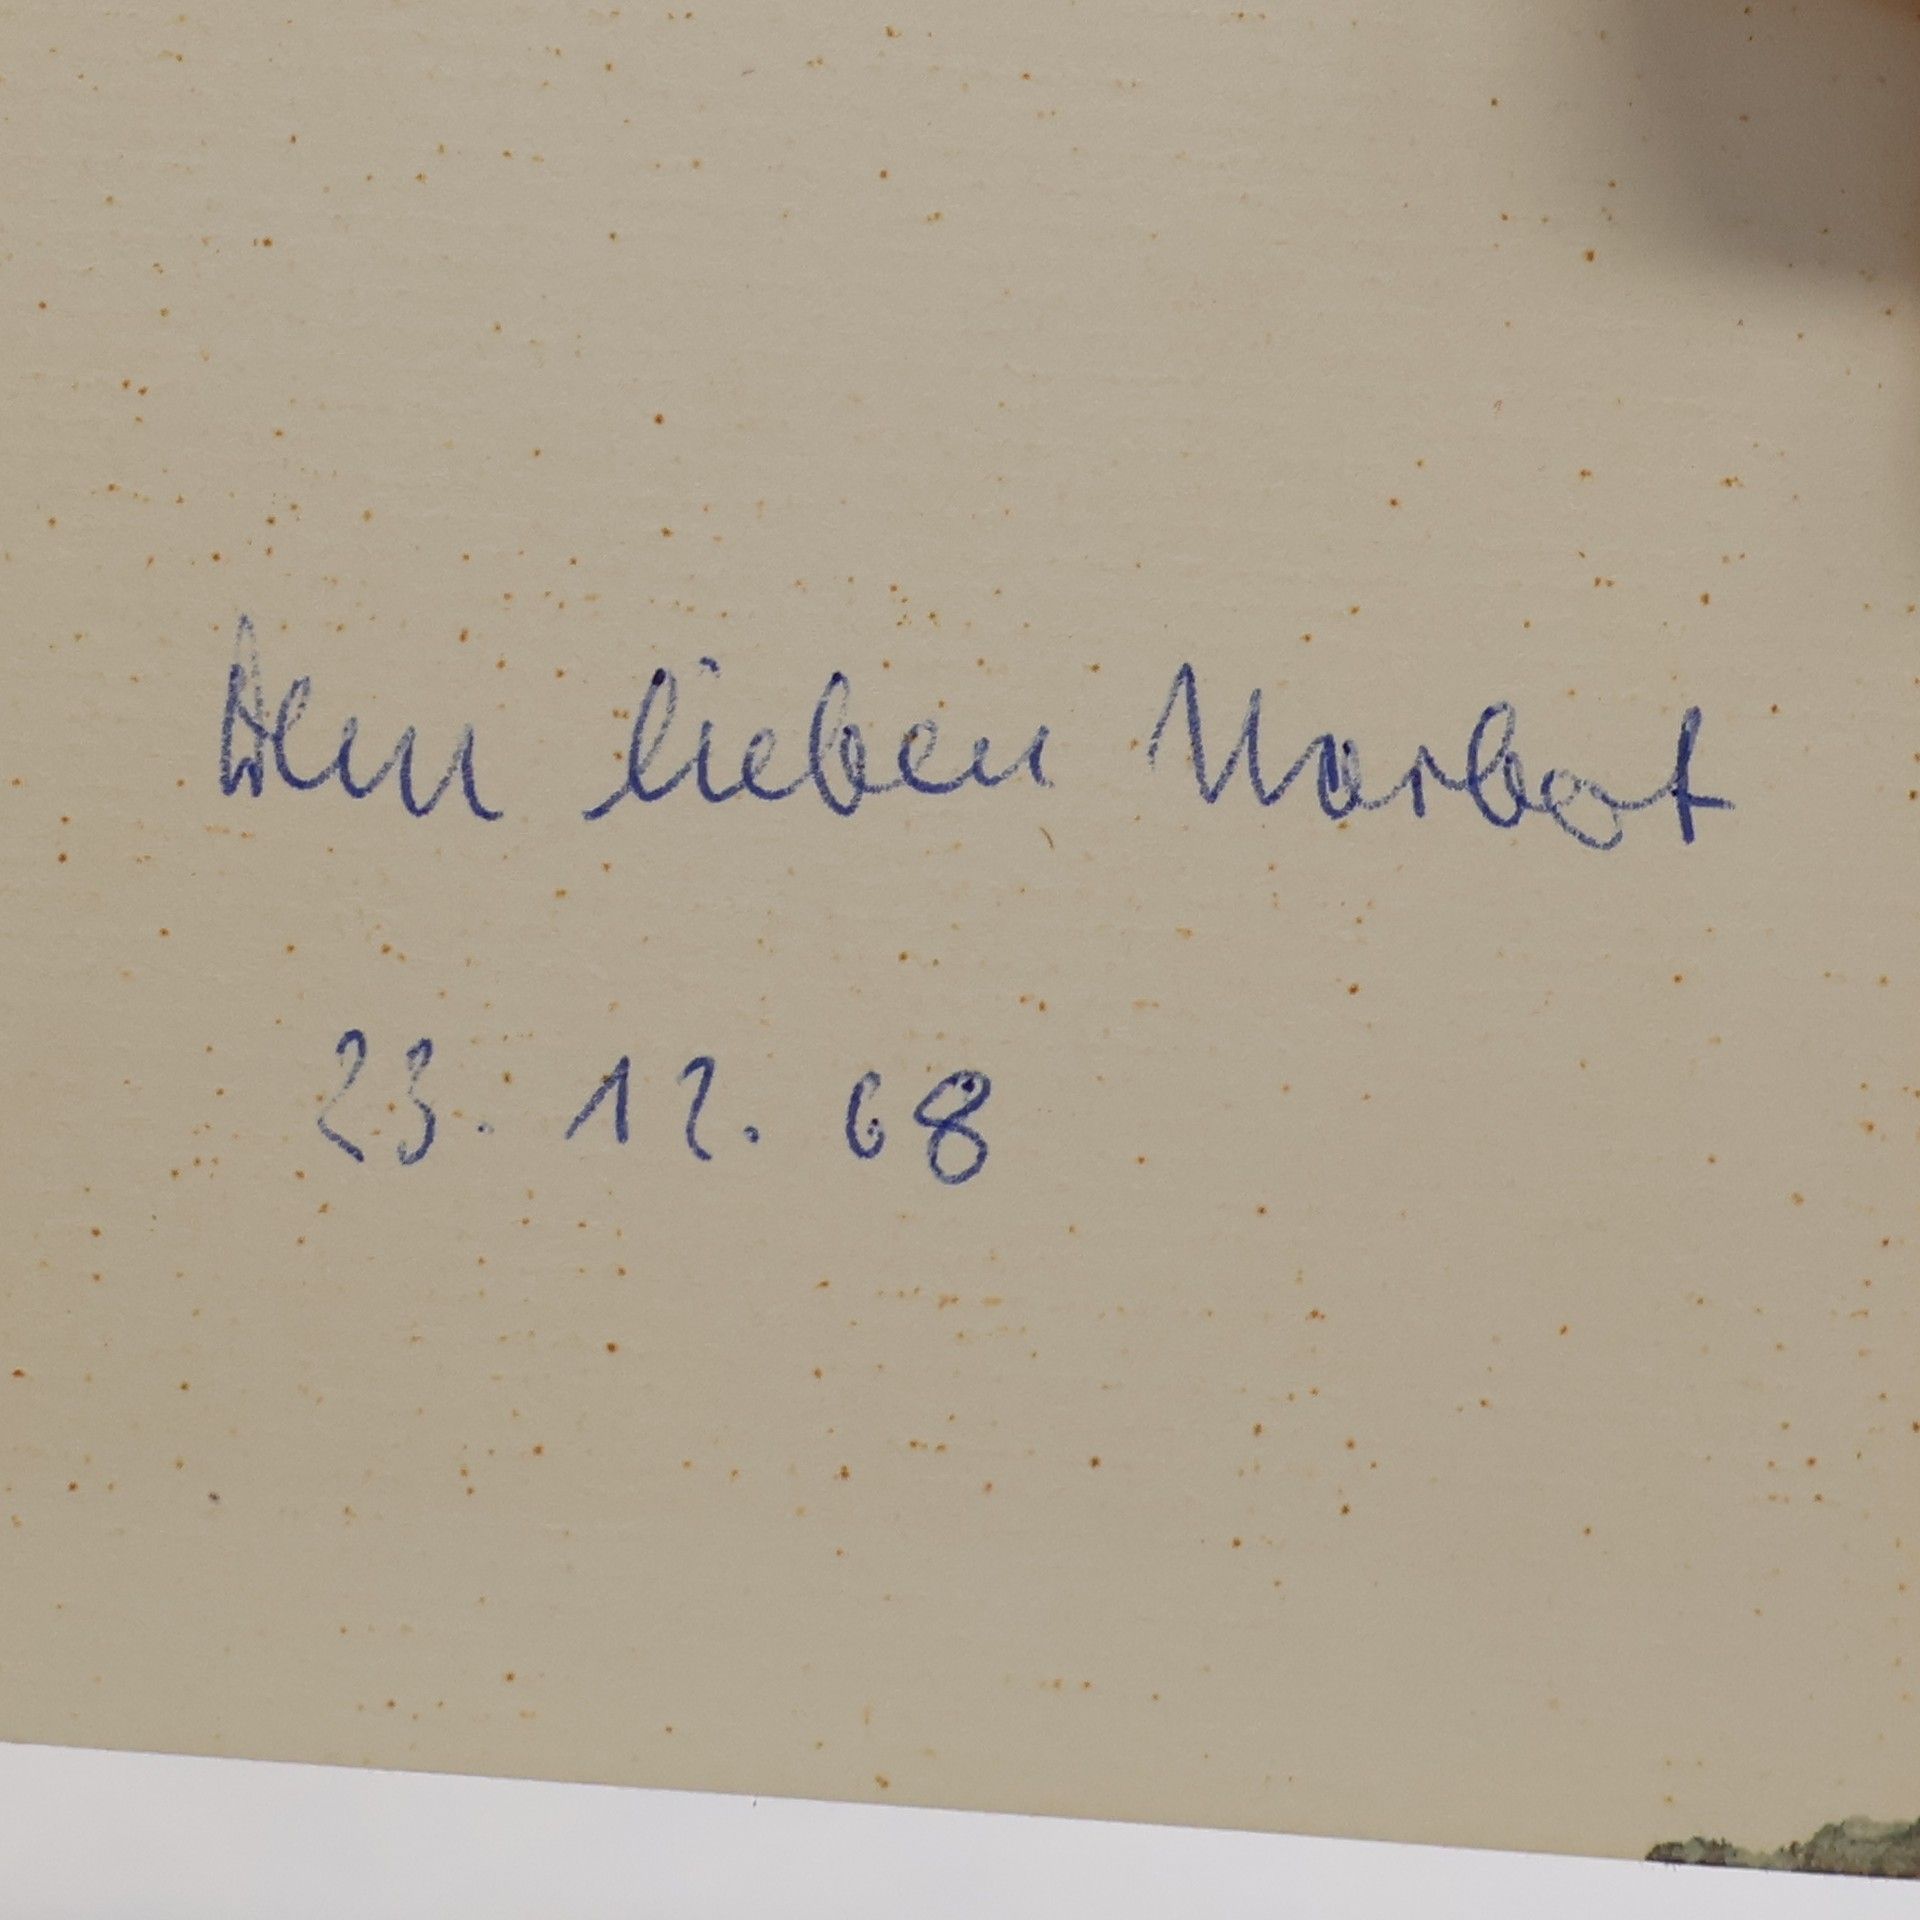 Dem lieben Norbert
23. 12. 68